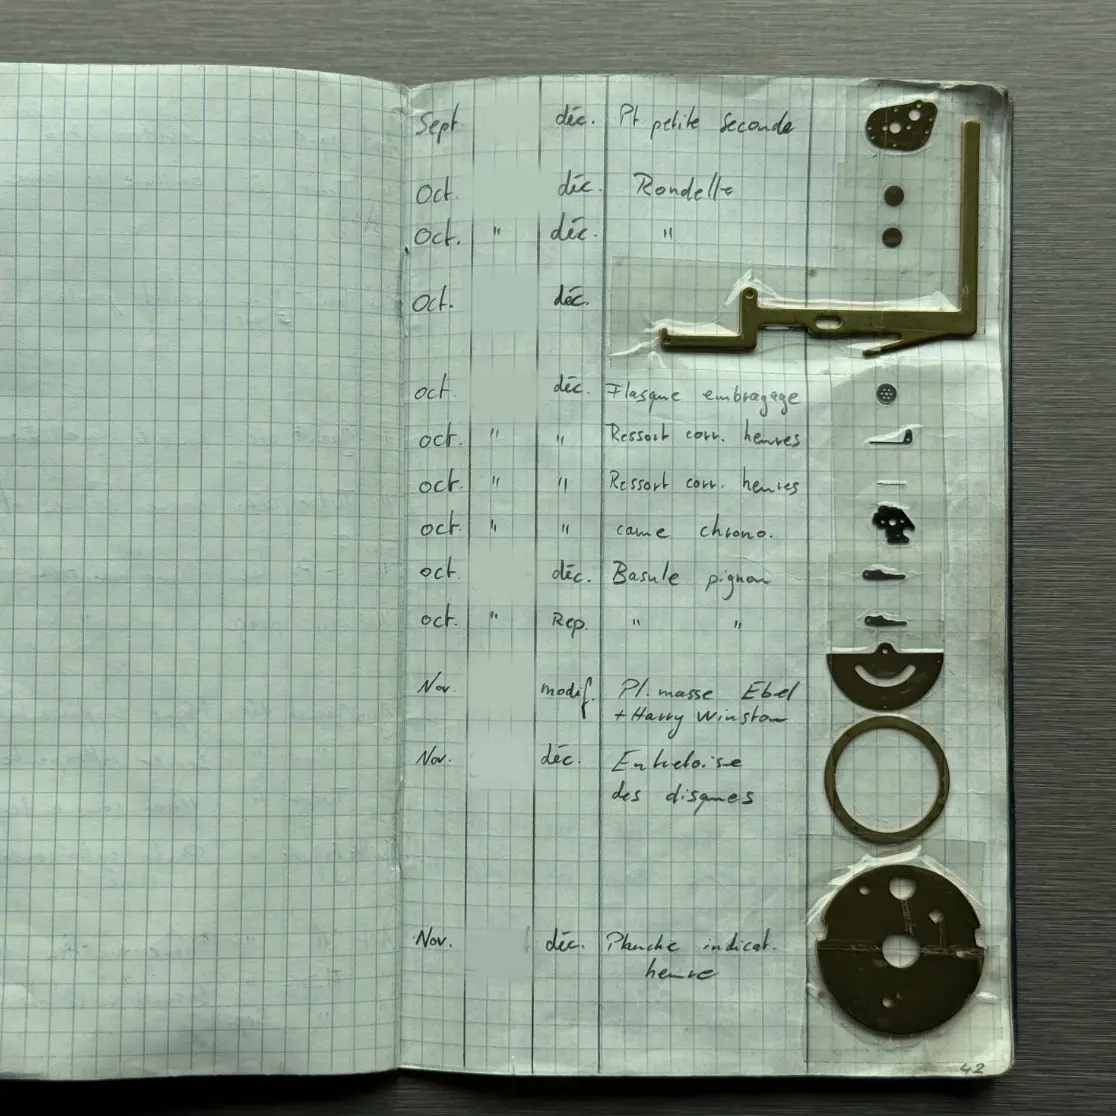 Sept. déc. Pt petite seconde
Oct. déc. Rondelle
Oct. " déc. "
Oct. déc.
oct. déc. Flasque embrayage
oct. " " Ressort corr. heures
oct. " " Ressort corr. heures
oct. " " came chrono.
oct. déc. Basule pignon
oct. " Rep. " "
Nov. modif. Pl. masse Ebel
+ Harry Winston
Nov. déc. Entretoise
des disques
Nov. déc. Planche indicat.
heure
42